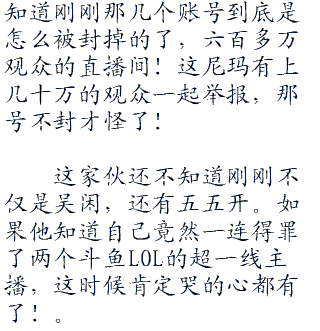 知道刚刚那几个账号到底是
怎么被封掉的了，六百多万
观众的直播间！这尼玛有上
几十万的观众一起举报，那
号不封才怪了！
这家伙还不知道刚刚不
仅是吴闲，还有五五开。如
果他知道自己竟然一连得罪
了两个斗鱼LOL的超一线主
播，这时候肯定哭的心都有
了！。